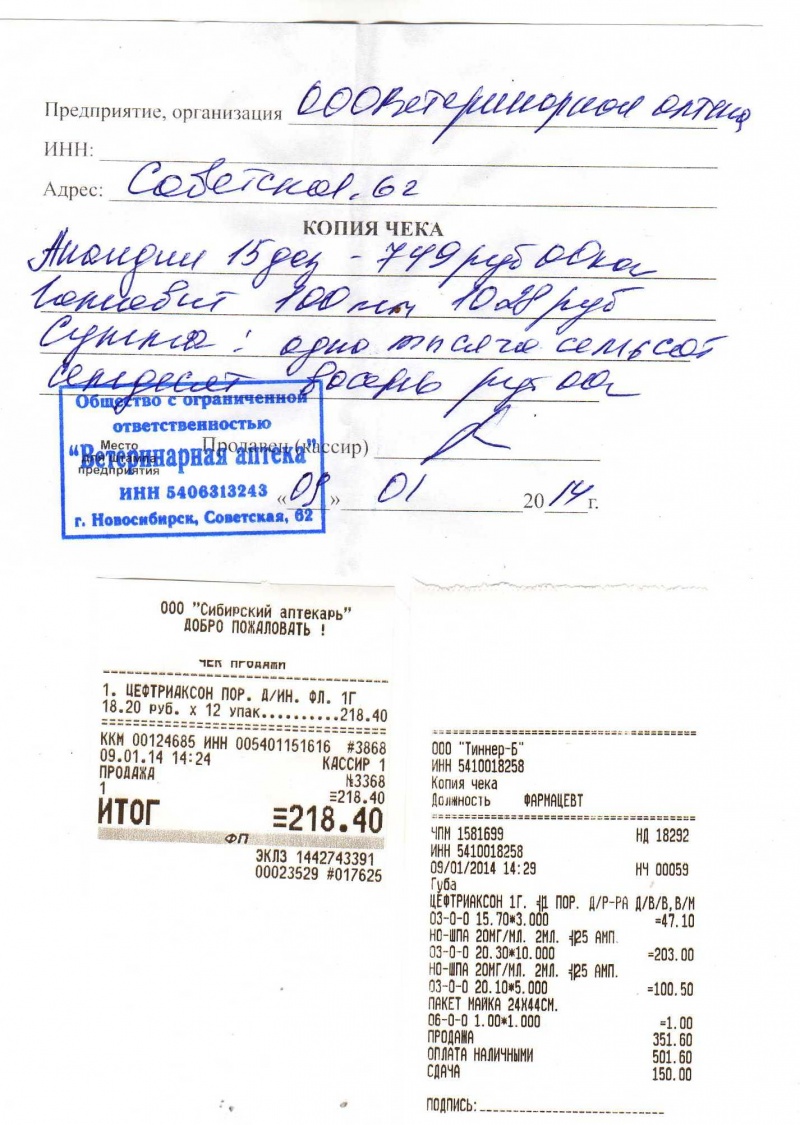 Предприятие, организация ООО Ветеринарная аптека
ИНН:
Адрес: Советская, 62
КОПИЯ ЧЕКА
15 доз - 749 руб 00 коп
Гамовит 100 мл 1028 руб
Сумма: одна тысяча семьсот
семдесят восемь руб 00к
Общество с ограниченной
ответственностью
Место Продавец (кассир)
"Ветеринарная аптека"
для штампа
предприятия
ИНН 5406313243
«09» 01 2014 г.
г. Новосибирск, Советская, 62
ООО "Сибирский аптекарь"
ДОБРО ПОЖАЛОВАТЬ !
ЧЕК ПРОДАЖИ
1. ЦЕФТРИАКСОН ПОР. Д/ИН. ФЛ. 1Г
18.20 руб. x 12 упак..........218.40
ККМ 00124685 ИНН 005401151616 #3868
09.01.14 14:24 КАССИР 1
ПРОДАЖА №3368
1 =218.40
ИТОГ =218.40
ФП
ЭКЛЗ 1442743391
00023529 #017625
ООО "Тиннер-Б"
ИНН 5410018258
Копия чека
Должность ФАРМАЦЕВТ
ЧПМ 1581699 НД 18292
ИНН 5410018258
09/01/2014 14:29 НЧ 00059
Губа
ЦЕФТРИАКСОН 1Г. №1 ПОР. Д/Р-РА Д/В/В,В/М
03-0-0 15.70*3.000 =47.10
НО-ШПА 20МГ/МЛ. 2МЛ. №25 АМП.
03-0-0 20.30*10.000 =203.00
НО-ШПА 20МГ/МЛ. 2МЛ. №25 АМП.
03-0-0 20.10*5.000 =100.50
ПАКЕТ МАЙКА 24X44СМ.
06-0-0 1.00*1.000 =1.00
ПРОДАЖА 351.60
ОПЛАТА НАЛИЧНЫМИ 501.60
СДАЧА 150.00
ПОДПИСЬ: